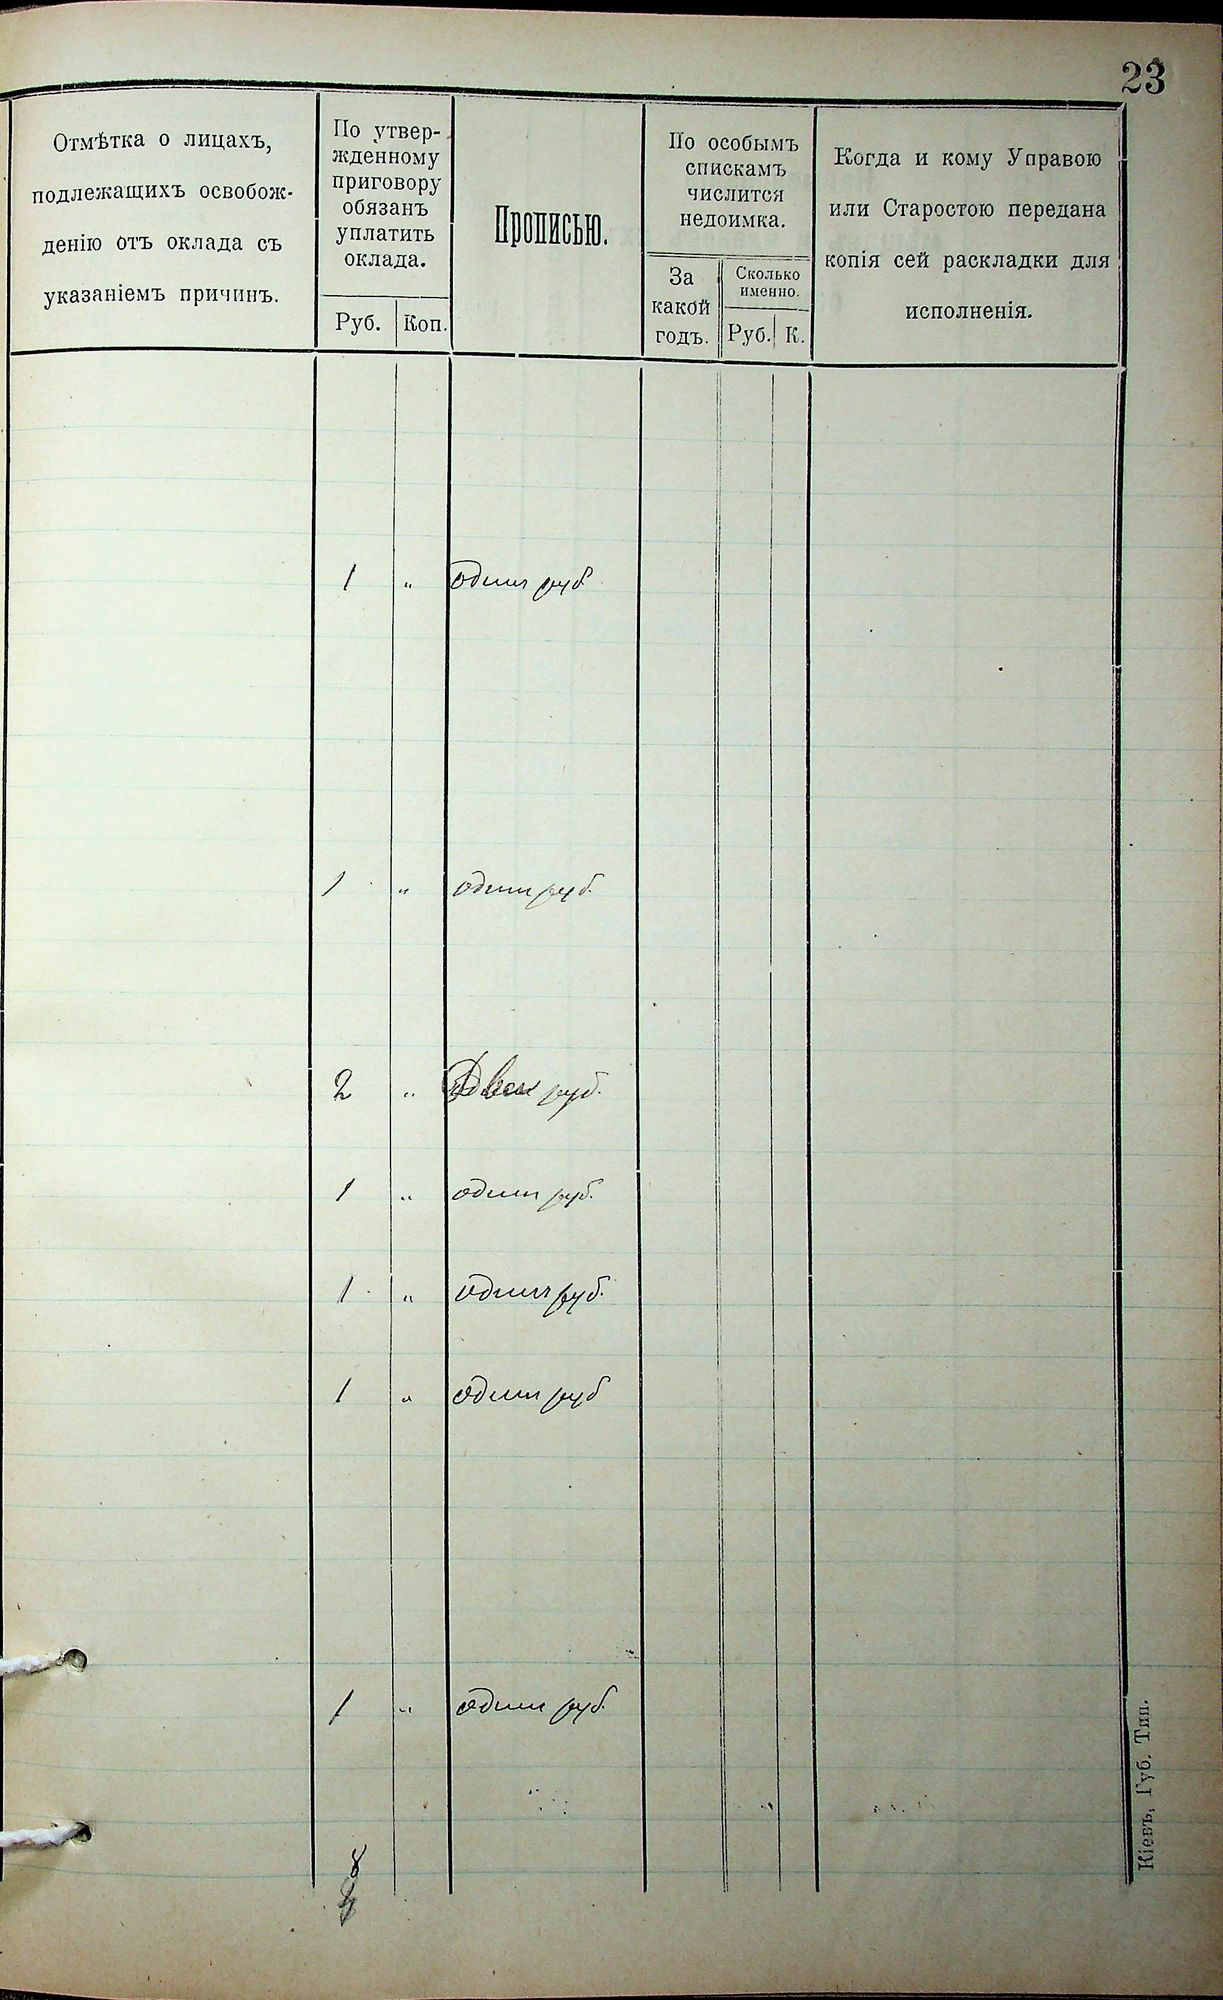 23
Отмѣтка о лицахъ,
подлежащихъ освобож-
денію отъ оклада съ
указаніемъ причинъ.
По утвер-
жденному
приговору
обязанъ
уплатить
оклада.
Руб. Коп.
Прописью.
По особымъ
спискамъ
числится
недоимка.
За
какой
годъ.
Сколько
именно.
Руб. К.
Когда и кому Управою
или Старостою передана
копія сей раскладки для
исполненія.
1 " один руб
1 " один руб.
2 " Два руб.
1 " один руб.
1 " один руб.
1 " один руб
1 " один руб.
8
Кіевъ, Губ. Тип.